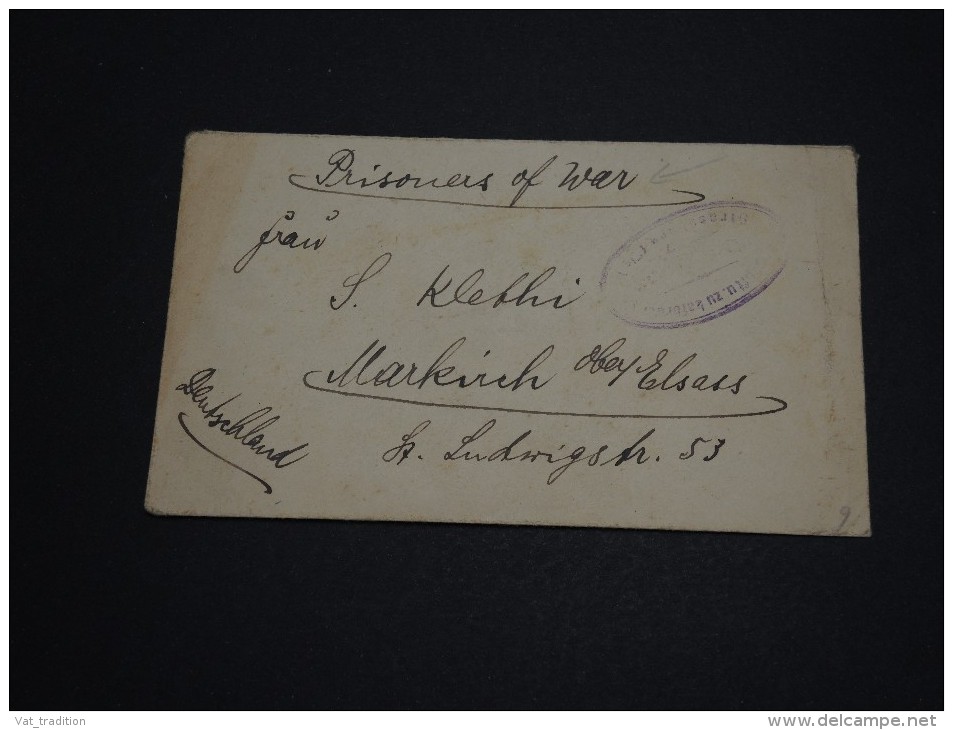 Prisoners of War
Frau
S. Klethi
Markirch Ober/Elsass
St. Ludwigstr. 53
Deutschland
zu
9
Vat_tradition
http://www.delcampe.net